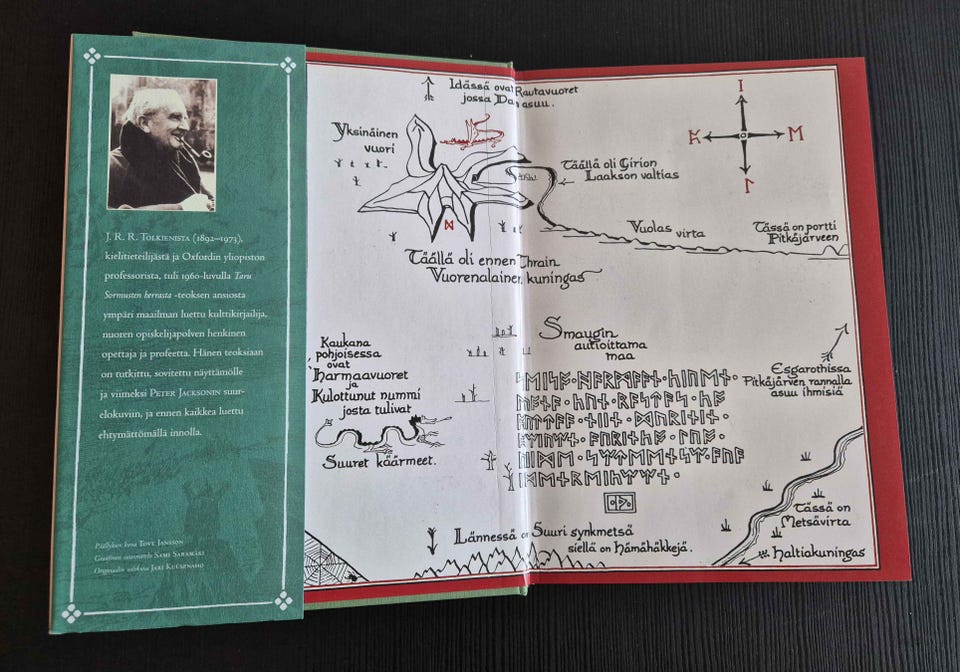 J. R. R. Tolkienista (1892–1973),
kielitieteilijästä ja Oxfordin yliopiston
professorista, tuli 1960-luvulla Taru
Sormusten herrasta -teoksen ansiosta
ympäri maailman luettu kulttikirjailija,
nuoren opiskelijapolven henkinen
opettaja ja profeetta. Hänen teoksiaan
on tutkittu, sovitettu näyttämölle
ja viimeksi Peter Jacksonin suur-
elokuviin, ja ennen kaikkea luettu
ehtymättömällä innolla.
Päällyksen kuva Tove Jansson
Graafinen suunnittelu Sami Saramäki
Jari Kuusenaho
Idässä ovat Rautavuoret
jossa asuu.
Yksinäinen
vuori
Täällä oli Girion
Laakson valtias
Vuolas virta
Tässä on portti
Pitkäjärveen
Täällä oli ennen Thrain
Vuorenalainen kuningas
Smaugin
autioittama
maa
Kaukana
pohjoisessa
ovat
Harmaavuoret
ja
Kulottunut nummi
josta tulivat
Suuret käärmeet.
Esgarothissa
Pitkäjärven rannalla
asuu ihmisiä
Tässä on
Metsävirta
Haltiakuningas
Lännessä on Suuri synkmetsä
siellä on Hämähäkkejä.